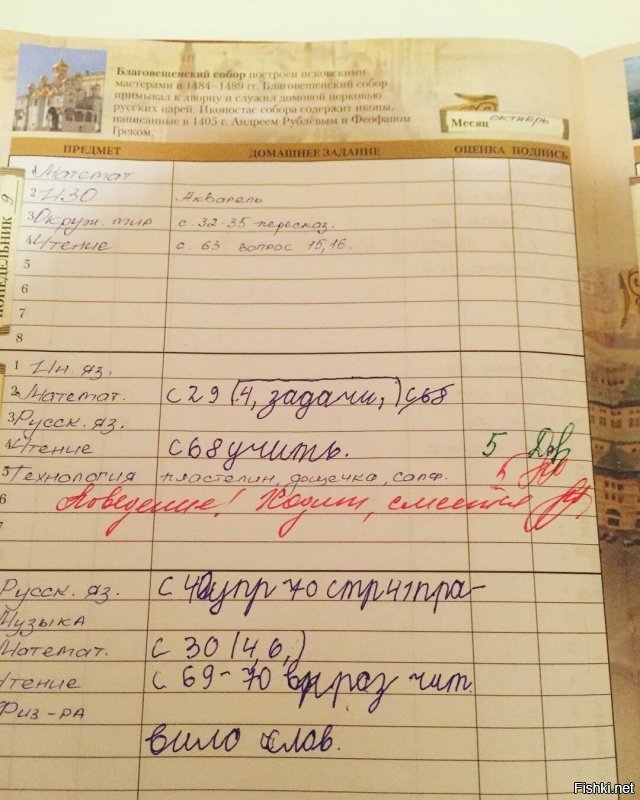 Благовещенский собор построен псковскими
мастерами в 1484–1489 гг. Благовещенский собор
примыкал к дворцу и служил домовой церковью
русских царей. Иконостас собора содержит иконы,
написанные в 1405 г. Андреем Рублёвым и Феофаном
Греком.
Месяц октябрь
ПРЕДМЕТ ДОМАШНЕЕ ЗАДАНИЕ ОЦЕНКА ПОДПИСЬ
ПОНЕДЕЛЬНИК 9
1 Математ
2 ИЗО Акварель
3 Окруж. мир с. 32-35 пересказ.
4 Чтение с. 63 вопрос 15,16.
5
6
7
8
1 Ин. яз.
2 Математ. с 29 (4, задачи,) с68
3 Русск. яз.
4 Чтение с 68 учить. 5
5 Технология пластелин, дощечка, салф. 5
6 Поведение! Ходит, смеётся
7
Русск. яз. с 40 упр 70 стр 41 пра-
Музыка
Математ. с 30 (4, 6,)
Чтение с 69-70 выраз чит.
Физ-ра
вило слов.
Fishki.net